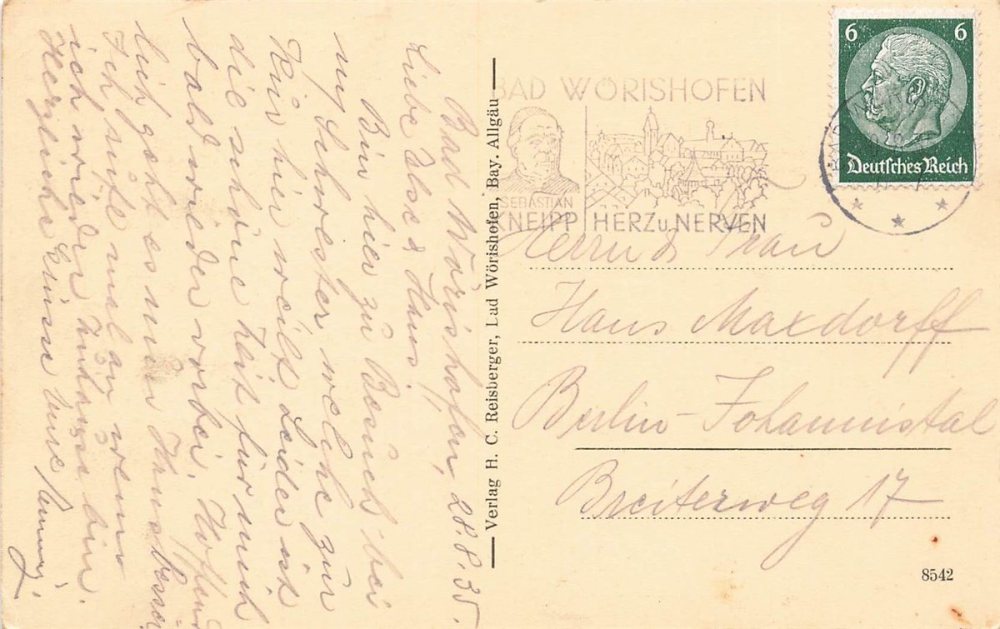 Bad Wörishofen, 28.8.35.
Liebe Ilse & Hans!
Bin hier zu Besuch bei
my Schwester welche zur
Kur hier weilt. Leider ist
die schöne Zeit für mich
bald wieder vorbei. Hoffent
lich geht es mir Ihnen besser.
Ich rufe mal an wenn
ich wieder zuhause bin.
Herzliche Grüsse Eure
Verlag H. C. Reisberger, Bad Wörishofen, Bay. Allgäu
BAD WÖRISHOFEN
SEBASTIAN
KNEIPP
HERZ u. NERVEN
6 6
Deutsches Reich
Herrn & Frau
Hans Maxdorff
Berlin-Johannistal
Breiterweg 17
8542